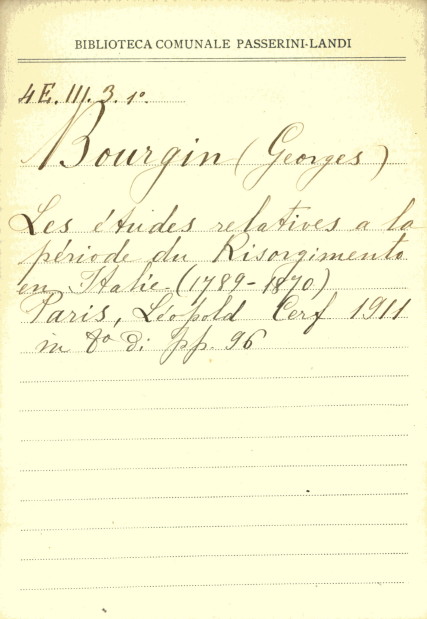 BIBLIOTECA COMUNALE PASSERINI-LANDI
4E. III. 3. 1º.
Bourgin (Georges)
Les études relatives a la
période du Risorgimento
en Italie - (1789-1870)
Paris, Léopold Cerf 1911
in 8º di pp. 96